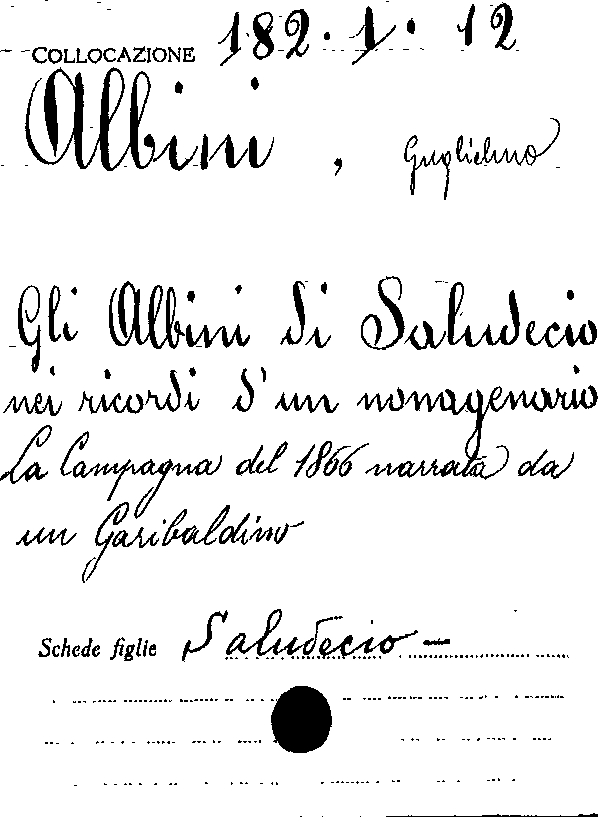 COLLOCAZIONE 182.1.12
Albini, Guglielmo
Gli Albini di Saludecio
nei ricordi d'un nonagenario
La Campagna del 1866 narrata da
un Garibaldino
Schede figlie Saludecio –